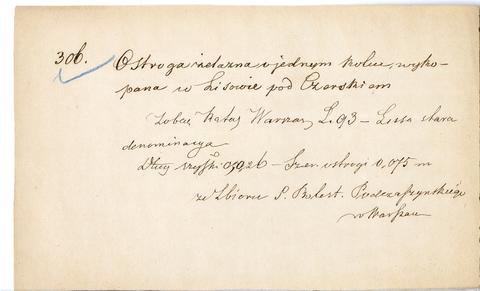 306. Ostroga żelazna o jednym kolcu, wyko-
pana w Lisowie pod Czerskiem
Zobacz Katal. Warszaw. L. 93 – stara
denominacya
Dług. szyjki 0,026 – Szer. ostrogi 0,075 m
ze Zbioru P. Bolest. Podczaszyńskiego
w Warszaw